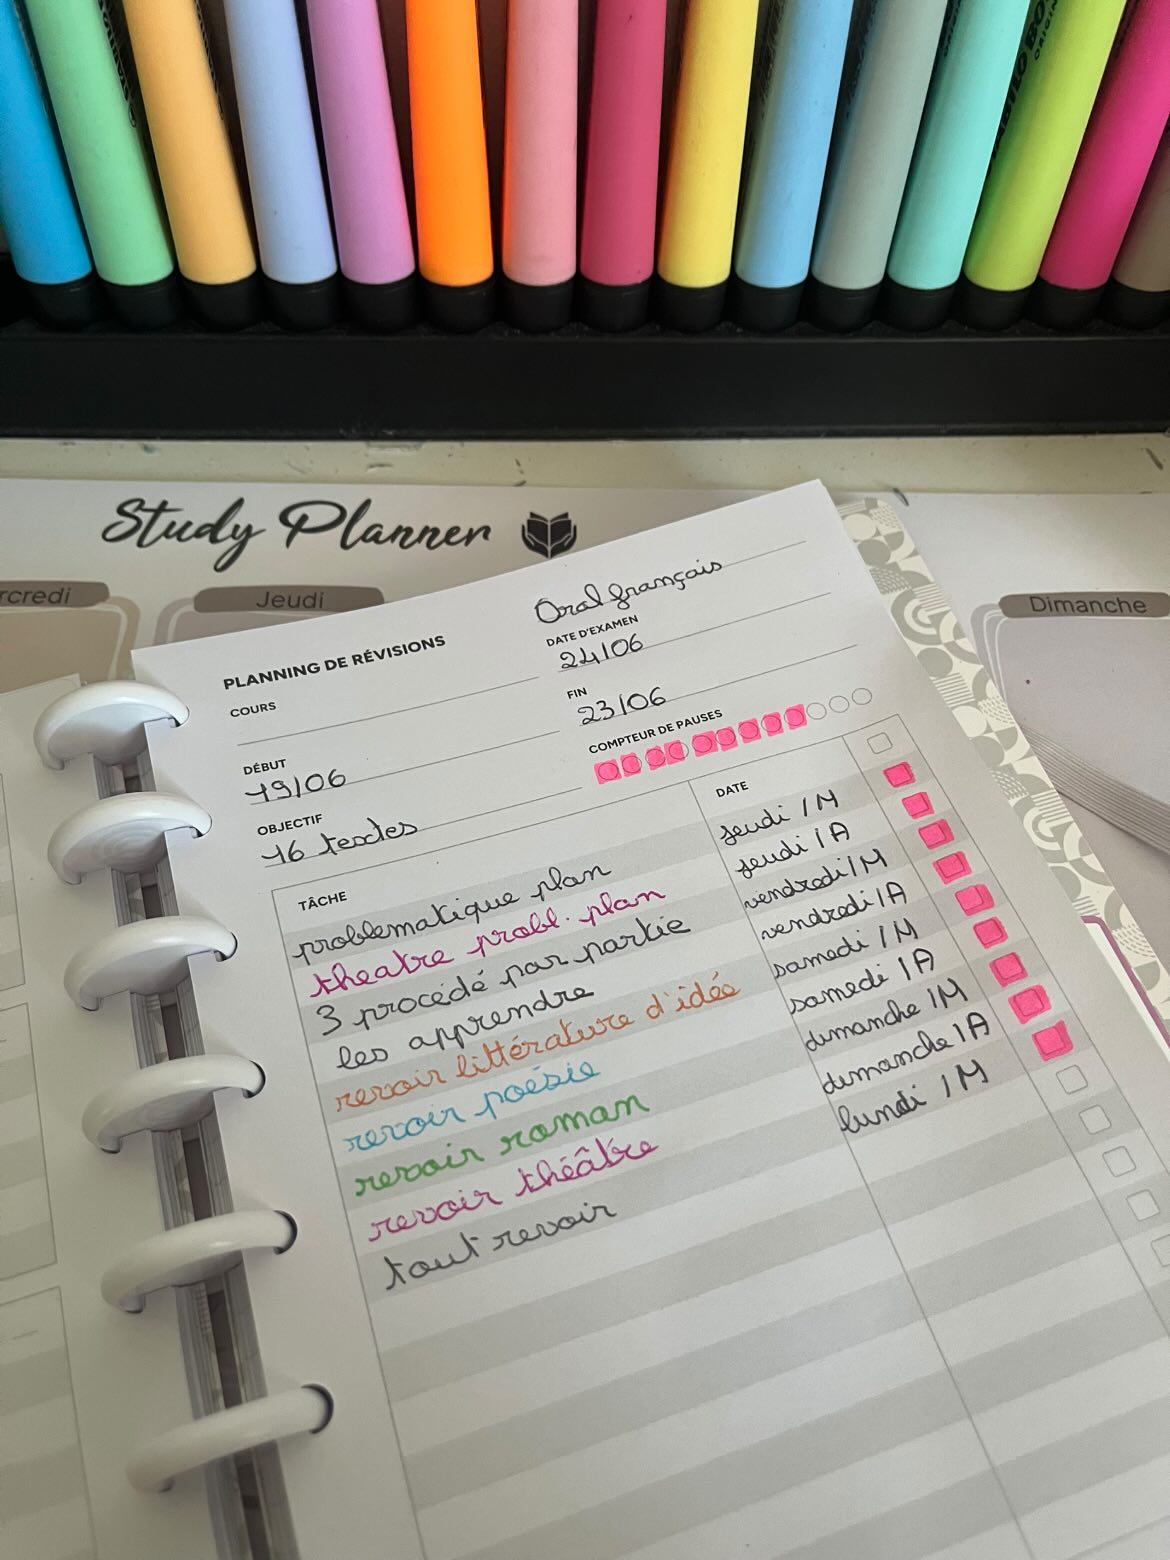 BOSS
ORIGINAL
Study Planner
rcredi
Jeudi
Dimanche
Oral français
PLANNING DE RÉVISIONS
DATE D'EXAMEN
24/06
COURS
FIN
23/06
DÉBUT
19/06
COMPTEUR DE PAUSES
OBJECTIF
16 textes
TÂCHE DATE
problematique plan jeudi / M
theatre probl. plan jeudi / A
3 procédé par partie vendredi / M
les apprendre vendredi / A
revoir littérature d'idée samedi / M
revoir poésie samedi / A
revoir roman dimanche / M
revoir théâtre dimanche / A
tout revoir lundi / M